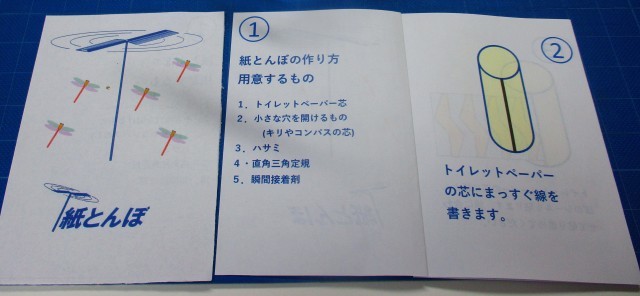 紙とんぼ
①
紙とんぼの作り方
用意するもの
１．トイレットペーパー芯
２．小さな穴を開けるもの
(キリやコンパスの芯)
３．ハサミ
４・直角三角定規
５．瞬間接着剤
②
トイレットペーパー
の芯にまっすぐ線を
書きます。